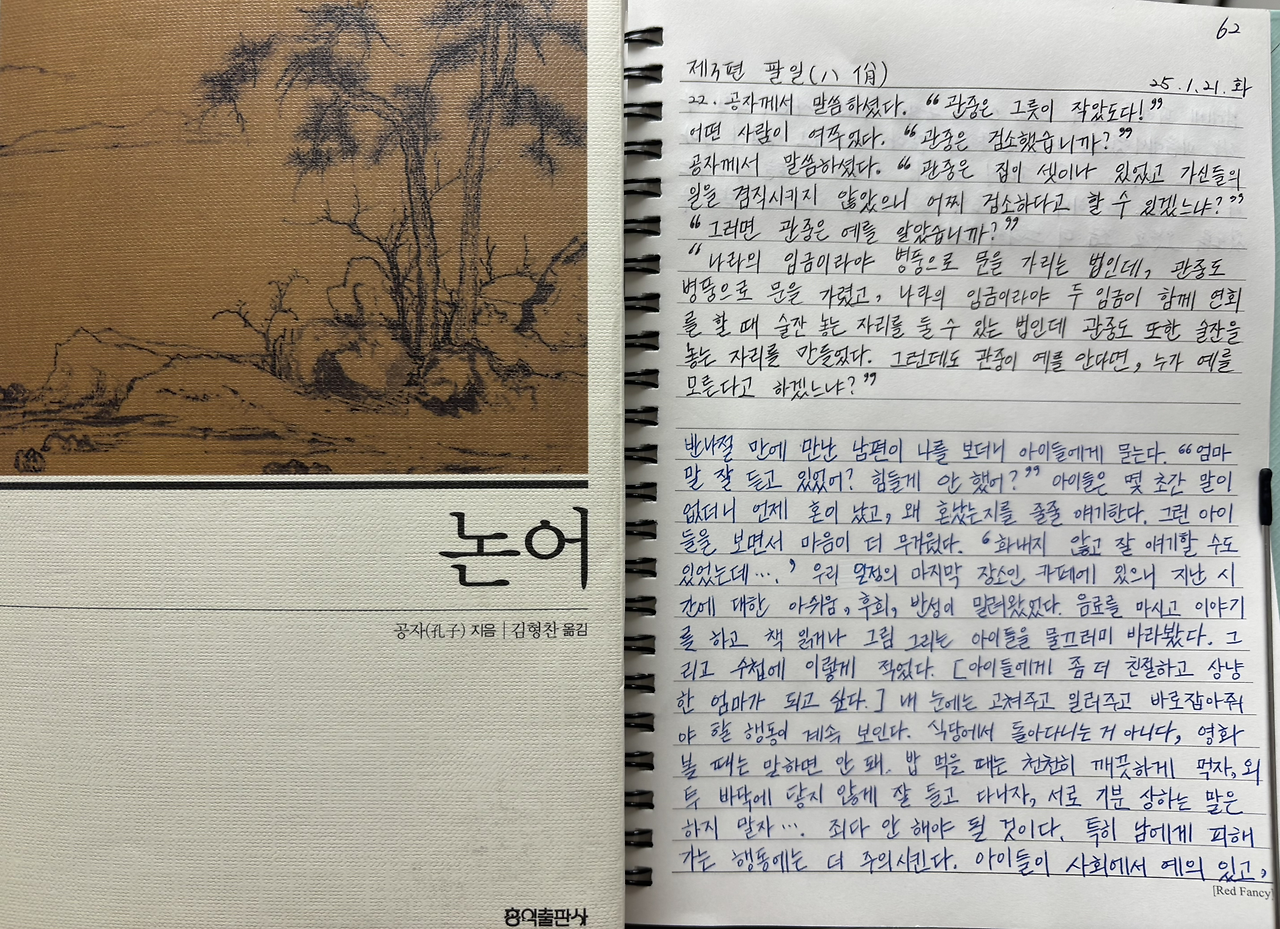 논어
공자(孔子) 지음 | 김형찬 옮김
홍익출판사
62
제3편 팔일(八佾)
25.1.21.화
22. 공자께서 말씀하셨다. “관중은 그릇이 작았도다!”
어떤 사람이 여쭈었다. “관중은 검소했습니까?”
공자께서 말씀하셨다. “관중은 집이 셋이나 있었고 가신들의
일을 겸직시키지 않았으니 어찌 검소하다고 할 수 있겠느냐?”
“그러면 관중은 예를 알았습니까?”
“나라의 임금이라야 병풍으로 문을 가리는 법인데, 관중도
병풍으로 문을 가렸고, 나라의 임금이라야 두 임금이 함께 연회
를 할 때 술잔 놓는 자리를 둘 수 있는 법인데 관중도 또한 술잔을
놓는 자리를 만들었다. 그런데도 관중이 예를 안다면, 누가 예를
모른다고 하겠느냐?”
반나절 만에 만난 남편이 나를 보더니 아이들에게 묻는다. “엄마
말 잘 듣고 있었어? 힘들게 안 했어?” 아이들은 몇 초간 말이
없더니 언제 혼이 났고, 왜 혼났는지를 줄줄 얘기한다. 그런 아이
들을 보면서 마음이 더 무거웠다. ‘화내지 않고 잘 얘기할 수도
있었는데….’ 우리 일정의 마지막 장소인 카페에 있으니 지난 시
간에 대한 아쉬움, 후회, 반성이 밀려왔었다. 음료를 마시고 이야기
를 하고 책 읽거나 그림 그리는 아이들을 물끄러미 바라봤다. 그
리고 수첩에 이렇게 적었다. [아이들에게 좀 더 친절하고 상냥
한 엄마가 되고 싶다.] 내 눈에는 고쳐주고 일러주고 바로잡아줘
야 할 행동이 계속 보인다. 식당에서 돌아다니는 거 아니다, 영화
볼 때는 말하면 안 돼. 밥 먹을 때는 천천히 깨끗하게 먹자, 외
투 바닥에 닿지 않게 잘 들고 다니자, 서로 기분 상하는 말은
하지 말자…. 죄다 안 해야 될 것이다. 특히 남에게 피해
가는 행동에는 더 주의시킨다. 아이들이 사회에서 예의 있고,
[Red Fancy]